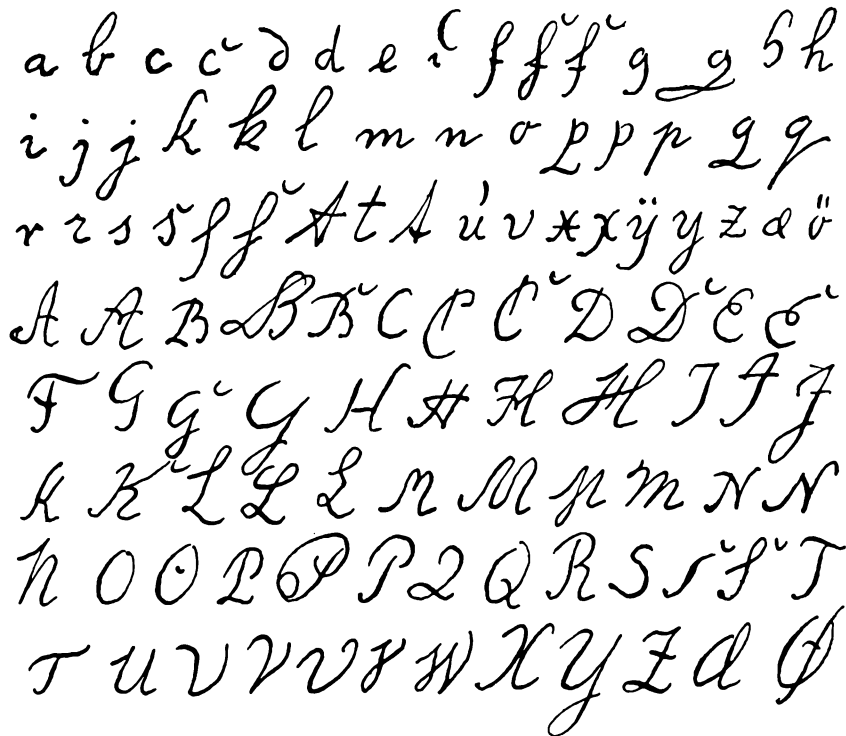 a b c c̆ d d e ı̆ f f̆ f̆ g g h h
i j j k k l m n o p p p q q
r r s s̆ f f̆ t t t ú v x x ÿ y z æ ö
A A B B B̆ C C C̆ D D̆ E Ĕ
F G Ğ G H H H H I J J
K K̆ L L L M M M M N N
N O O P P P Q Q R S S̆ S̆ T
T U V V V V W X Y Z Æ Ø